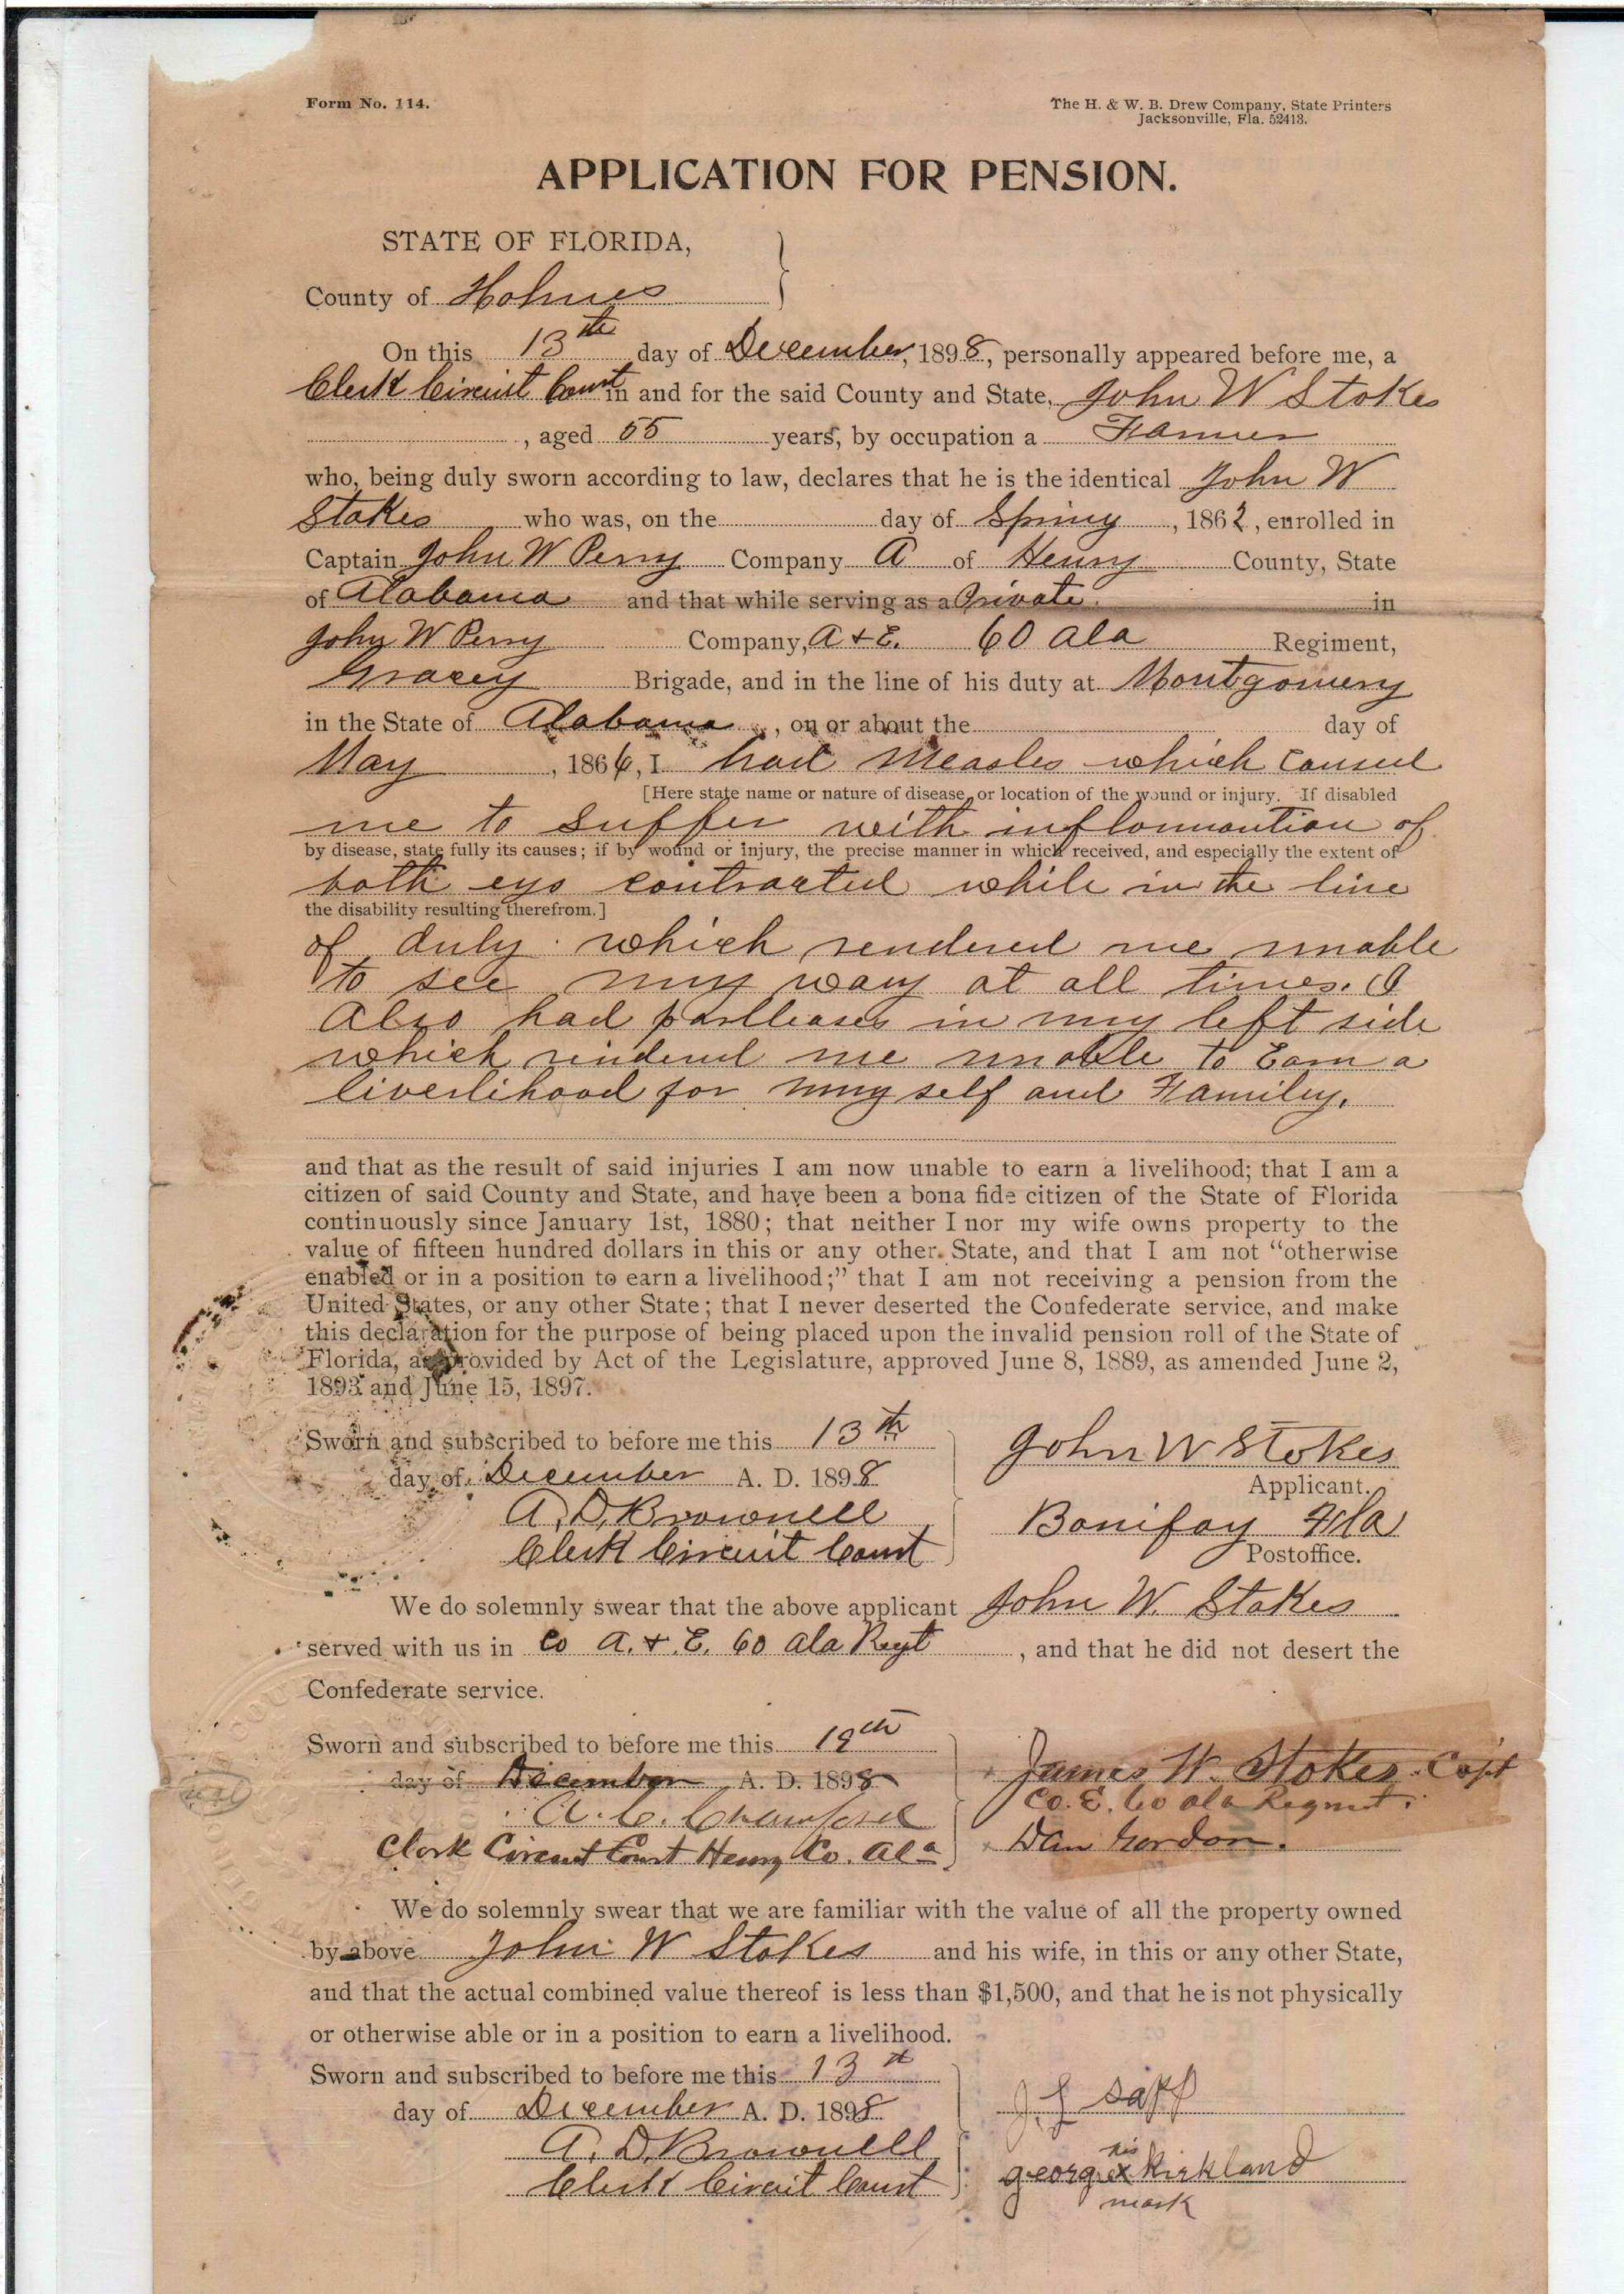 Form No. 114.
The H. & W. B. Drew Company, State Printers
Jacksonville, Fla. 52413.
APPLICATION FOR PENSION.
STATE OF FLORIDA,
County of Holmes
On this 13th day of December, 1898, personally appeared before me, a
Clerk Circuit Court in and for the said County and State, John W Stokes
, aged 55 years, by occupation a Farmer
who, being duly sworn according to law, declares that he is the identical John W
Stokes who was, on the day of Spring, 1862, enrolled in
Captain John W Perry Company A of Henry County, State
of Alabama and that while serving as a Private. in
John W Perry Company, A & E. 60 Ala Regiment,
Gracey Brigade, and in the line of his duty at Montgomery
in the State of Alabama, on or about the day of
May, 186 , I had Measles which caused
[Here state name or nature of disease, or location of the wound or injury. If disabled
me to suffer with inflommontion of
by disease, state fully its causes; if by wound or injury, the precise manner in which received, and especially the extent of
both eys contracted while in the line
the disability resulting therefrom.]
of duly which rendered me unable
to see my way at all times. I
Also had in my left side
which rendered me unable to Earn a
liverlihood for my self and Family.
and that as the result of said injuries I am now unable to earn a livelihood; that I am a
citizen of said County and State, and have been a bona fide citizen of the State of Florida
continuously since January 1st, 1880; that neither I nor my wife owns property to the
value of fifteen hundred dollars in this or any other State, and that I am not "otherwise
enabled or in a position to earn a livelihood;" that I am not receiving a pension from the
United States, or any other State; that I never deserted the Confederate service, and make
this declaration for the purpose of being placed upon the invalid pension roll of the State of
Florida, as provided by Act of the Legislature, approved June 8, 1889, as amended June 2,
1893 and June 15, 1897.
Sworn and subscribed to before me this 13th
day of December A. D. 1898
A. D. Brownell
Clerk Circuit Court
John W Stokes
Applicant.
Bonifay Fla
Postoffice.
We do solemnly swear that the above applicant John W. Stokes
served with us in Co A. & E. 60 Ala Regt, and that he did not desert the
Confederate service.
Sworn and subscribed to before me this 19th
day of December A. D. 1898
A. C. Crawford
Clerk Circuit Court Henry Co. Ala
James W. Stokes. Capt
Co. E. 60 Ala Regmt.
Dan Gordon.
We do solemnly swear that we are familiar with the value of all the property owned
by above John W Stokes and his wife, in this or any other State,
and that the actual combined value thereof is less than $1,500, and that he is not physically
or otherwise able or in a position to earn a livelihood.
Sworn and subscribed to before me this 13th
day of December A. D. 1898
A. D. Brownell
Clerk Circuit Court
J. L Sapp
his
george x Kirkland
mark